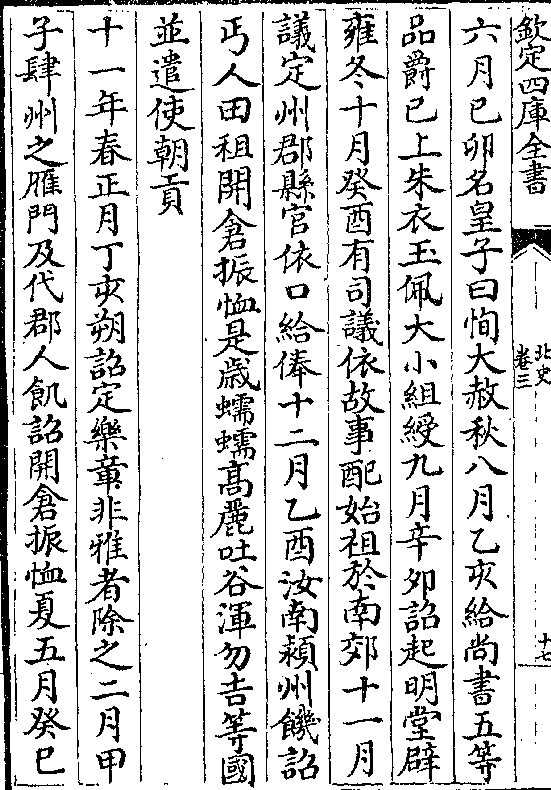 欽定四庫全書
北史
卷三
十七
六月己卯名皇子曰恂大赦秋八月乙亥給尚書五等
品爵已上朱衣玉佩大小組綬九月辛卯詔起明堂辟
雍冬十月癸酉有司議依故事配始祖於南郊十一月
議定州郡縣官依口給俸十二月乙酉汝南潁州饑詔
丐人田租開倉振恤是歲蠕蠕高麗吐谷渾勿吉等國
並遣使朝貢
十一年春正月丁亥朔詔定樂章非雅者除之二月甲
子肆州之雁門及代郡人飢詔開倉振恤夏五月癸巳